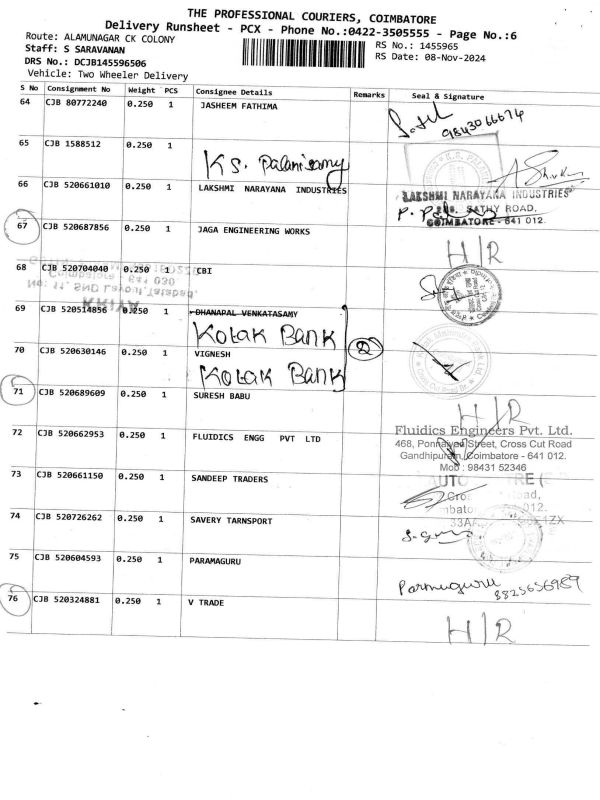 THE PROFESSIONAL COURIERS, COIMBATORE
Delivery Runsheet - PCX - Phone No.:0422-3505555 - Page No.:6
Route: ALAMUNAGAR CK COLONY
RS No.: 1455965
Staff: S SARAVANAN
RS Date: 08-Nov-2024
DRS No.: DCJB145596506
Vehicle: Two Wheeler Delivery
S No Consignment No Weight PCS Consignee Details Remarks Seal & Signature
64 CJB 80772240 0.250 1 JASHEEM FATHIMA
9843066674
65 CJB 1588512 0.250 1
KS. Palanisamy
66 CJB 520661010 0.250 1 LAKSHMI NARAYANA INDUSTRIES
LAKSHMI NARAYANA INDUSTRIES
SATHY ROAD,
COIMBATORE - 641 012.
67 CJB 520687856 0.250 1 JAGA ENGINEERING WORKS
H/R
68 CJB 520704040 0.250 1 CBI
Coimbatore - 641 030
No: 11, SND Layout, Tatabad,
KRIYA
69 CJB 520514856 0.250 1 DHANAPAL VENKATASAMY
Kotak Bank
2
70 CJB 520630146 0.250 1 VIGNESH
Kotak Bank
71 CJB 520689609 0.250 1 SURESH BABU
H/R
72 CJB 520662953 0.250 1 FLUIDICS ENGG PVT LTD
Fluidics Engineers Pvt. Ltd.
468, Ponnaiyan Street, Cross Cut Road
Gandhipuram, Coimbatore - 641 012.
Mob : 98431 52346
73 CJB 520661150 0.250 1 SANDEEP TRADERS
AUTO
Road,
012.
74 CJB 520726262 0.250 1 SAVERY TARNSPORT
33AA
1ZX
75 CJB 520604593 0.250 1 PARAMAGURU
Parmuguru
8825656989
76 CJB 520324881 0.250 1 V TRADE
H/R